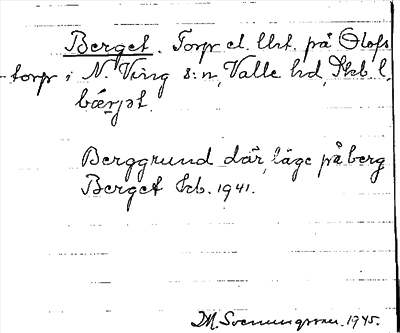 Berget. Torp el. lht. på Olofs
torp i N. Ving s:n, Valle hd, Skb. l.
bærjət.
Berggrund där, läge på berg
Berget Jrb. 1941.
M. Svenungsson. 1945.